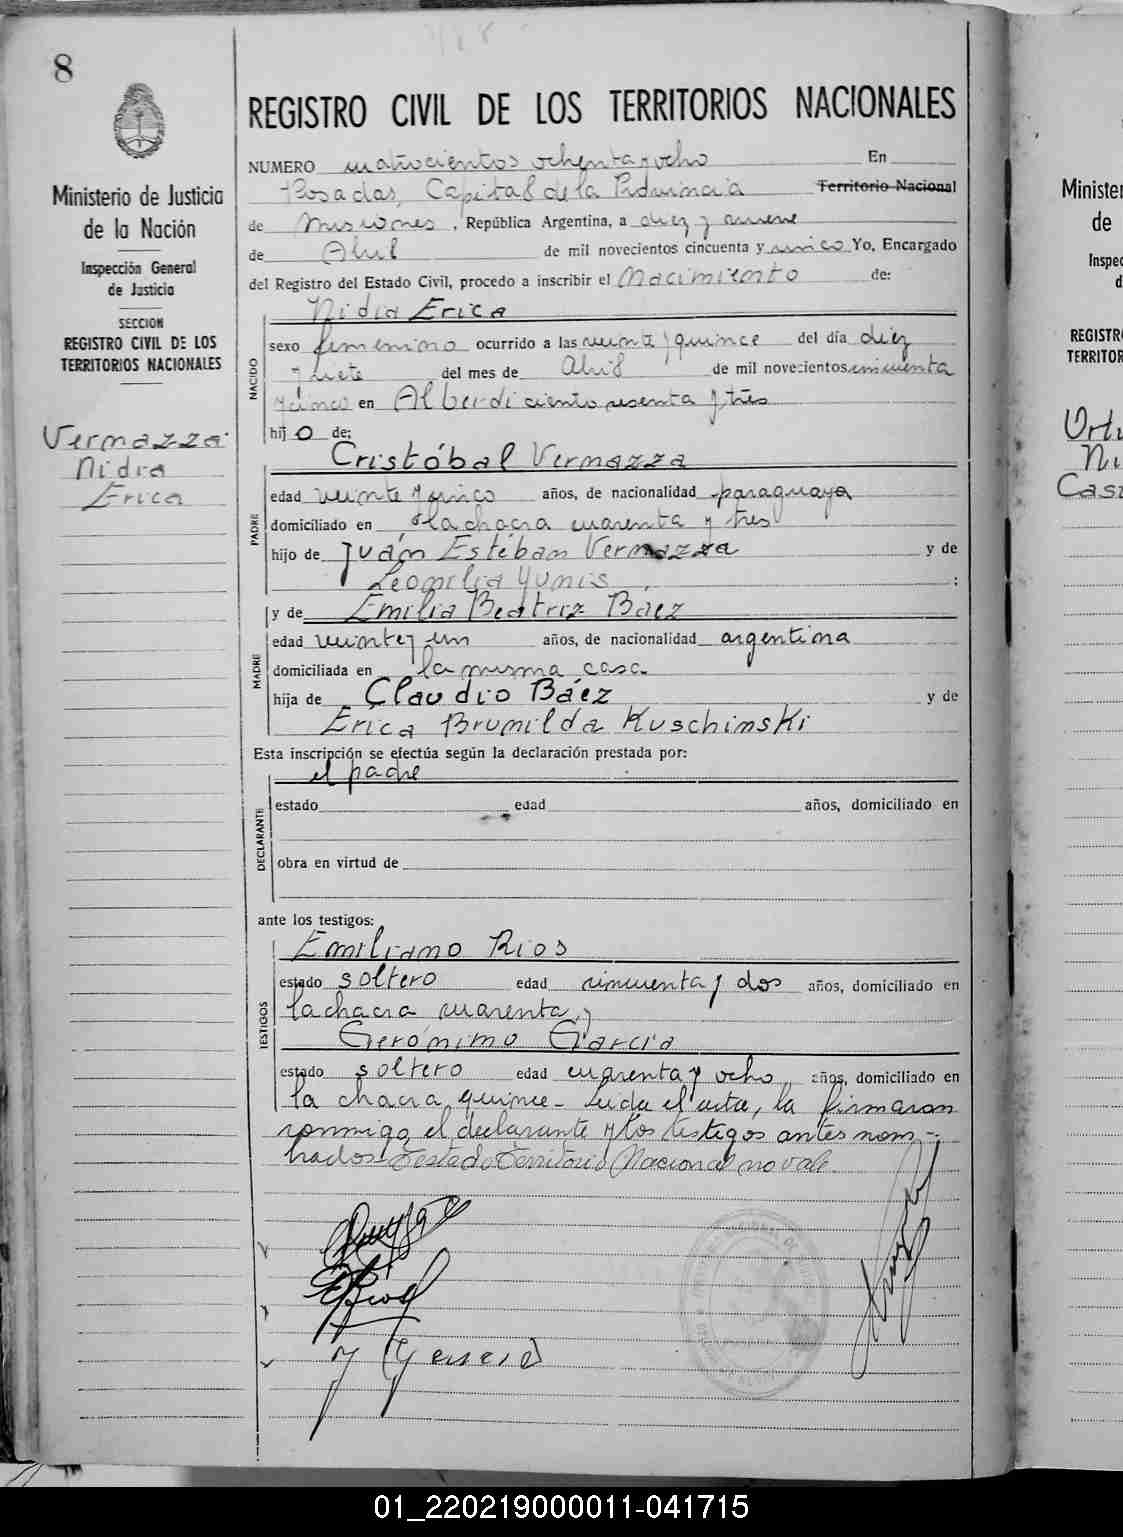 8
REGISTRO CIVIL DE LOS TERRITORIOS NACIONALES
Ministerio de Justicia
de la Nación
Inspección General
de Justicia
SECCION
REGISTRO CIVIL DE LOS
TERRITORIOS NACIONALES
Vermazza
Nidia
Erica
NUMERO cuatrocientos ochenta y ocho En
Posadas, Capital de la Provincia Territorio Nacional
de Misiones, República Argentina, a diez y nueve
de Abril de mil novecientos cincuenta y cinco Yo, Encargado
del Registro del Estado Civil, procedo a inscribir el Nacimiento de:
Nidia Erica
NACIDO
sexo femenino ocurrido a las veinte y quince del día diez
y siete del mes de Abril de mil novecientos cincuenta
y cinco en Alberdi ciento sesenta y tres
hijo de:
Cristóbal Vermazza
PADRE
edad veinte y cinco años, de nacionalidad paraguaya
domiciliado en la chacra cuarenta y tres
hijo de Juan Estéban Vermazza y de
Leonilia Yunis :
y de Emilia Beatriz Báez
MADRE
edad veinte y un años, de nacionalidad argentina
domiciliada en la misma casa
hija de Claudio Báez y de
Erica Brunilda Kuschinski
Esta inscripción se efectúa según la declaración prestada por:
el padre
DECLARANTE
estado edad años, domiciliado en
obra en virtud de
ante los testigos:
Emiliano Rios
TESTIGOS
estado soltero edad cincuenta y dos años, domiciliado en
la chacra cuarenta y
Gerónimo García
estado soltero edad cuarenta y ocho años, domiciliado en
la chacra quince- Leida el acta, la firmaron
conmigo, el declarante y los testigos antes nom-
brados- Testado: Territorio Nacional no vale
Ministe
de
Inspec
d
REGISTR
TERRITOR
Ortu
Ni
Cas
01_220219000011-041715